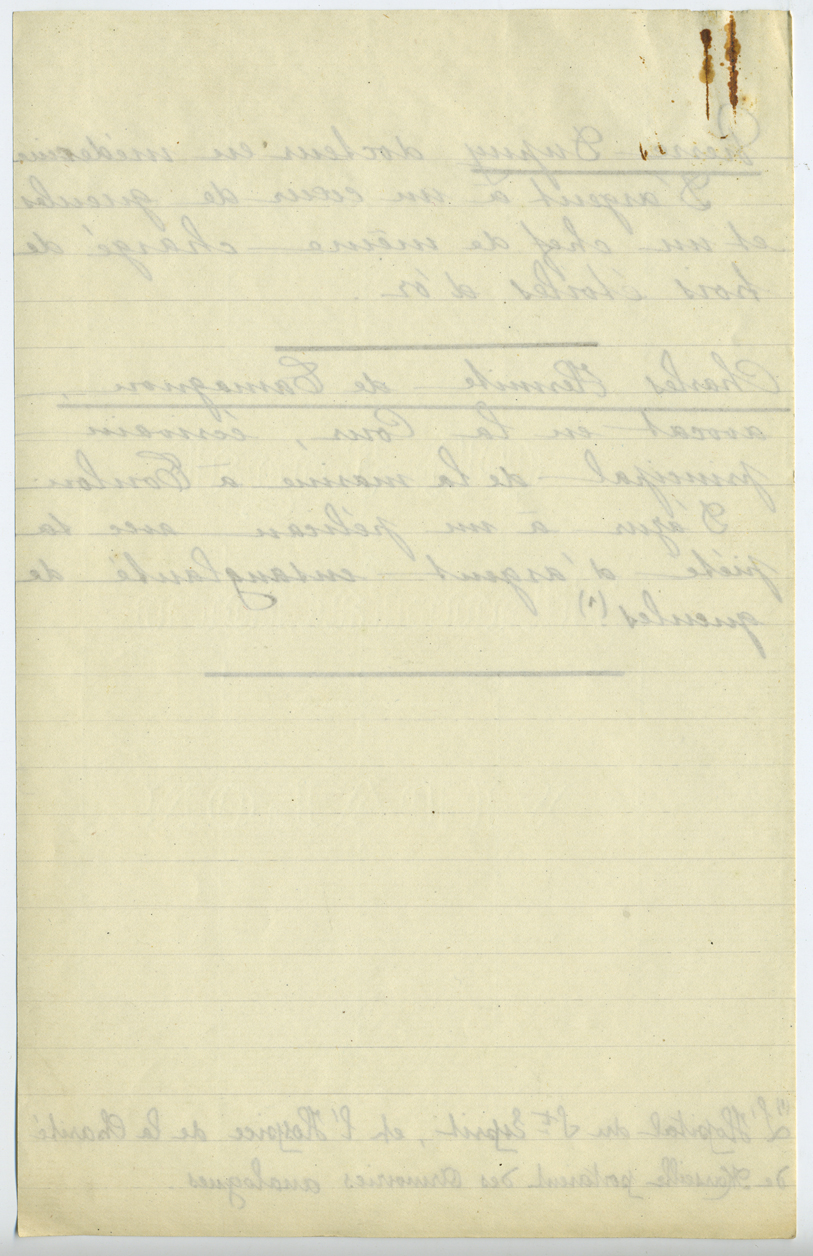 Pierre Dupuy docteur en médecin
D'argent à un cœur de gueules
et un chef de même chargé de
trois étoiles d'or.
Charles Hermite de Tamagnon,
avocat en la Cour, écrivain
principal de la marine à Toulon
D'azur à un pélican avec sa
piété d'argent ensanglanté de
gueules (1)
(1) L'Hôpital du St Esprit, et l'Hospice de la Charité
de Marseille portaient des armoiries analogues.